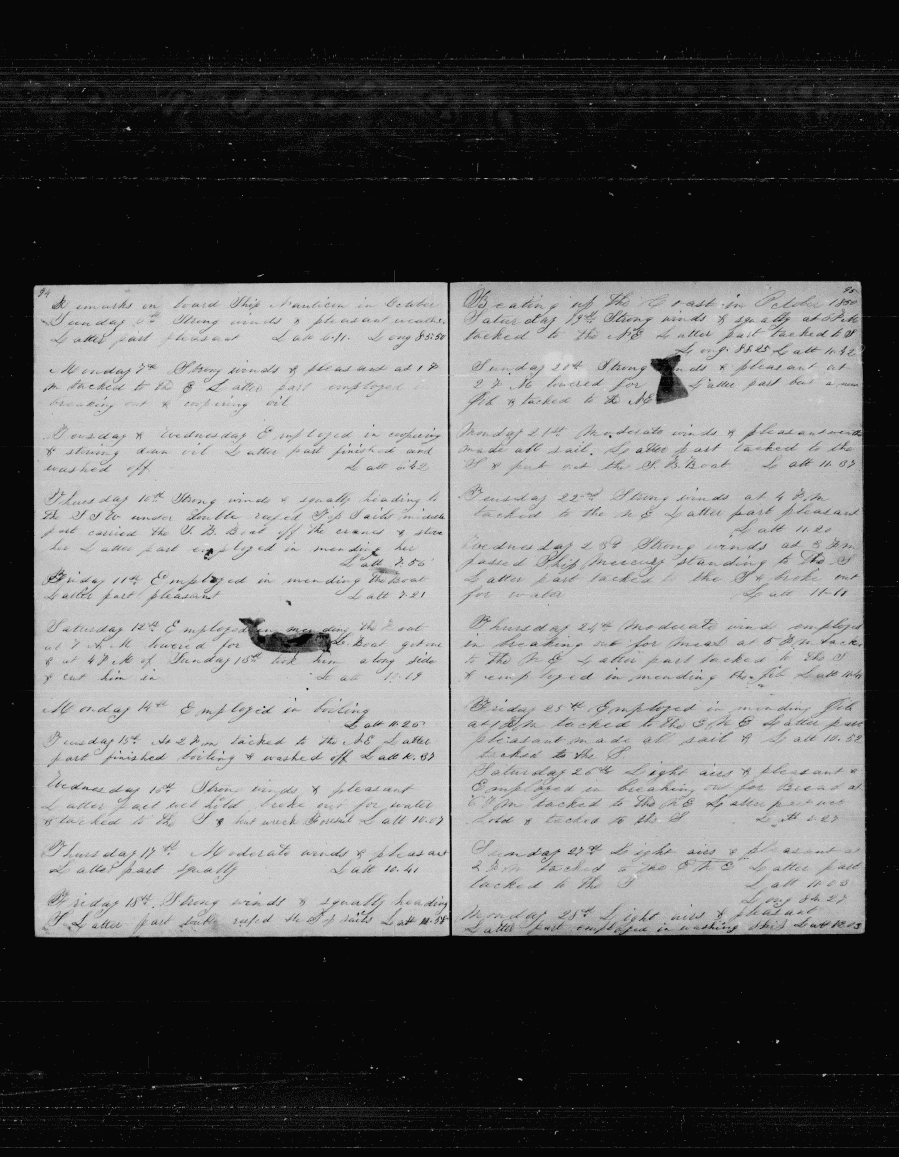 94
Remarks on board Ship Nauticon in October
Sunday 6th Strong winds & pleasant weather
Latter part pleasant Latt 6.11. Long 85:50
Monday 7th Strong winds & pleasant at 1 P
m tacked to the E Latter part employed
breaking out & coopering oil
Tuesday & Wednesday Employed in coopering
& stowing down oil Latter part finished and
washed off Latt 6:42
Thursday 10th Strong winds & squally heading to
the SSW under double reefed Top Sails middle
part carried the S. B. Boat off the cranes & stove
her Latter part employed in mending her
Latt 7.56
Friday 11th Employed in mending the Boat
Latter part pleasant Latt 7.21
Saturday 12th Employed in mending the Boat
at A.M lowered for Boat got one
& at 4 P.M of Sunday 13th took him along side
& cut him in Latt 11.09
Monday 14th Employed in boiling
Latt 11.25
Tuesday 15th At 2 P.m tacked to the NE Latter
part finished boiling & washed off Latt 10.37
Wednesday 16th Strong winds & pleasant
Latter part broke out for water
& tacked to the S Latt 10.07
Thursday 17th Moderate winds & pleasant
Latter part squally Latt 10.41
Friday 18th Strong winds & squally heading
S Latter part double reefed the Top sails Latt 11.58
95
Beating up the Coast in October 1850
Saturday 19th Strong winds & squally at
tacked to the NE Latter part tacked to S
Long. 85.25 Latt 11.32
Sunday 20th Strong winds & pleasant at
2 P.M lowered for Latter part bent a new
Jib & tacked to the NE
Monday 21st Moderate winds & pleasant weather
made all sail. Latter part tacked to the
S & put out the S. B. Boat Latt 11.37
Tuesday 22nd Strong winds at 4 P.m
tacked to the NE Latter part pleasant
Latt 11.20
Wednesday 23d Strong winds at 3 P.m
passed Ship Mercury standing to the S
Latter part tacked to the S & broke out
for water Latt 11.11
Thursday 24th Moderate winds employed
in breaking out for meat at 5 P.m tacked
to the NE Latter part tacked to the S
& employed in mending the jib Latt 11.41
Friday 25th Employed in mending Jib
at P.m tacked to the ENE Latter part
pleasant made all sail & Latt 10.52
tacked to the S.
Saturday 26th Light airs & pleasant &
Employed in breaking out for Bread at
6 P.m tacked to the NE Latter part
& tacked to the S Latt 11.27
Sunday 27th Light airs & pleasant at
2 P.m tacked to the ENE Latter part
tacked to the S Latt 11.03
Long 84.27
Monday 28th Light airs & pleasant
Latter part employed in washing Ship Latt 12.03